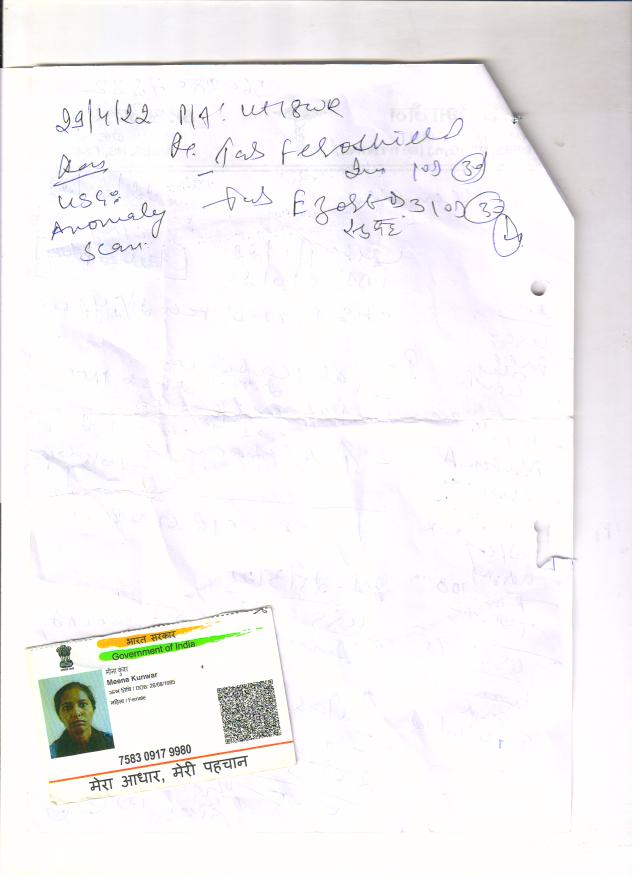 29/4/22 P/A: ut 18wk
Adv
Rx Tab Feroshield
1 OD 30
USG:
Anomaly
Scan.
Tab 3 1 OD 30
भारत सरकार
Government of India
मीना कुंवर
Meena Kunwar
जन्म तिथि / DOB: 26/08/1995
महिला / Female
7583 0917 9980
मेरा आधार, मेरी पहचान